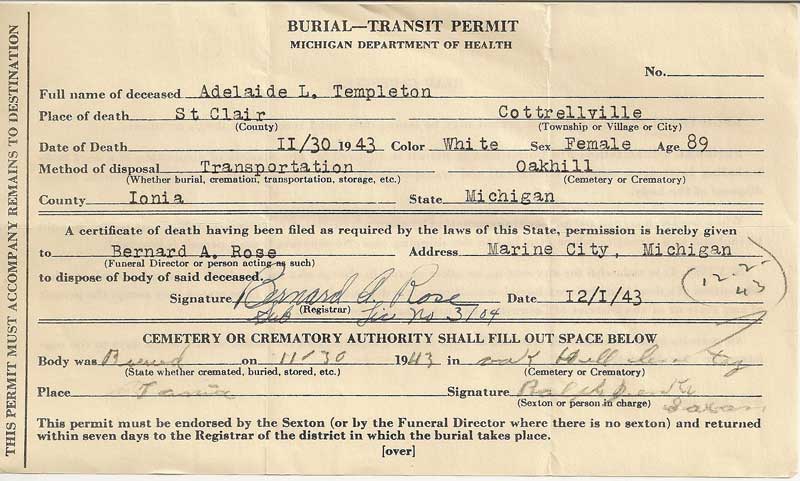 BURIAL—TRANSIT PERMIT
MICHIGAN DEPARTMENT OF HEALTH
No.
Full name of deceased Adelaide L. Templeton
Place of death St Clair Cottrellville
(County) (Township or Village or City)
Date of Death II/30 1943 Color White Sex Female Age 89
Method of disposal Transportation Oakhill
(Whether burial, cremation, transportation, storage, etc.) (Cemetery or Crematory)
County Ionia State Michigan
A certificate of death having been filed as required by the laws of this State, permission is hereby given
to Bernard A. Rose Address Marine City, Michigan
(Funeral Director or person acting as such)
to dispose of body of said deceased.
(12-2-43)
Signature Bernard A. Rose Date I2/I/43
(Registrar)
Sub Lic No 3104
CEMETERY OR CREMATORY AUTHORITY SHALL FILL OUT SPACE BELOW
Body was Buried on 11-30 1943 in Oak Hill
(State whether cremated, buried, stored, etc.) (Cemetery or Crematory)
Place Signature
(Sexton or person in charge)
This permit must be endorsed by the Sexton (or by the Funeral Director where there is no sexton) and returned
within seven days to the Registrar of the district in which the burial takes place.
[over]
THIS PERMIT MUST ACCOMPANY REMAINS TO DESTINATION